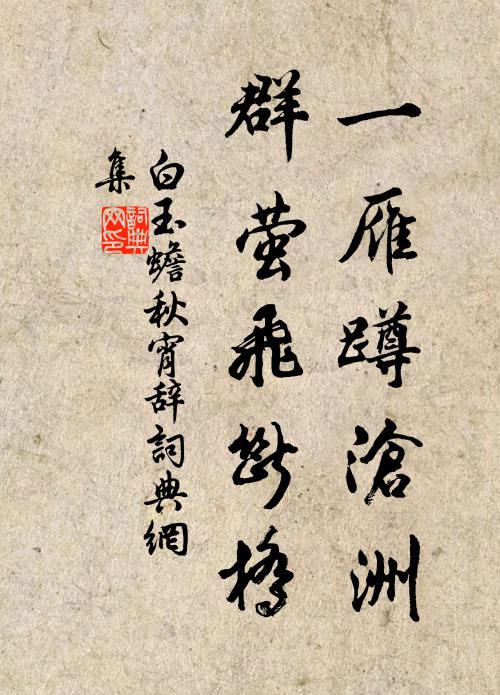 一雁蹲滄洲
群萤飛斷橋
白玉蟾秋宵辞詞典網
集
詞典网印